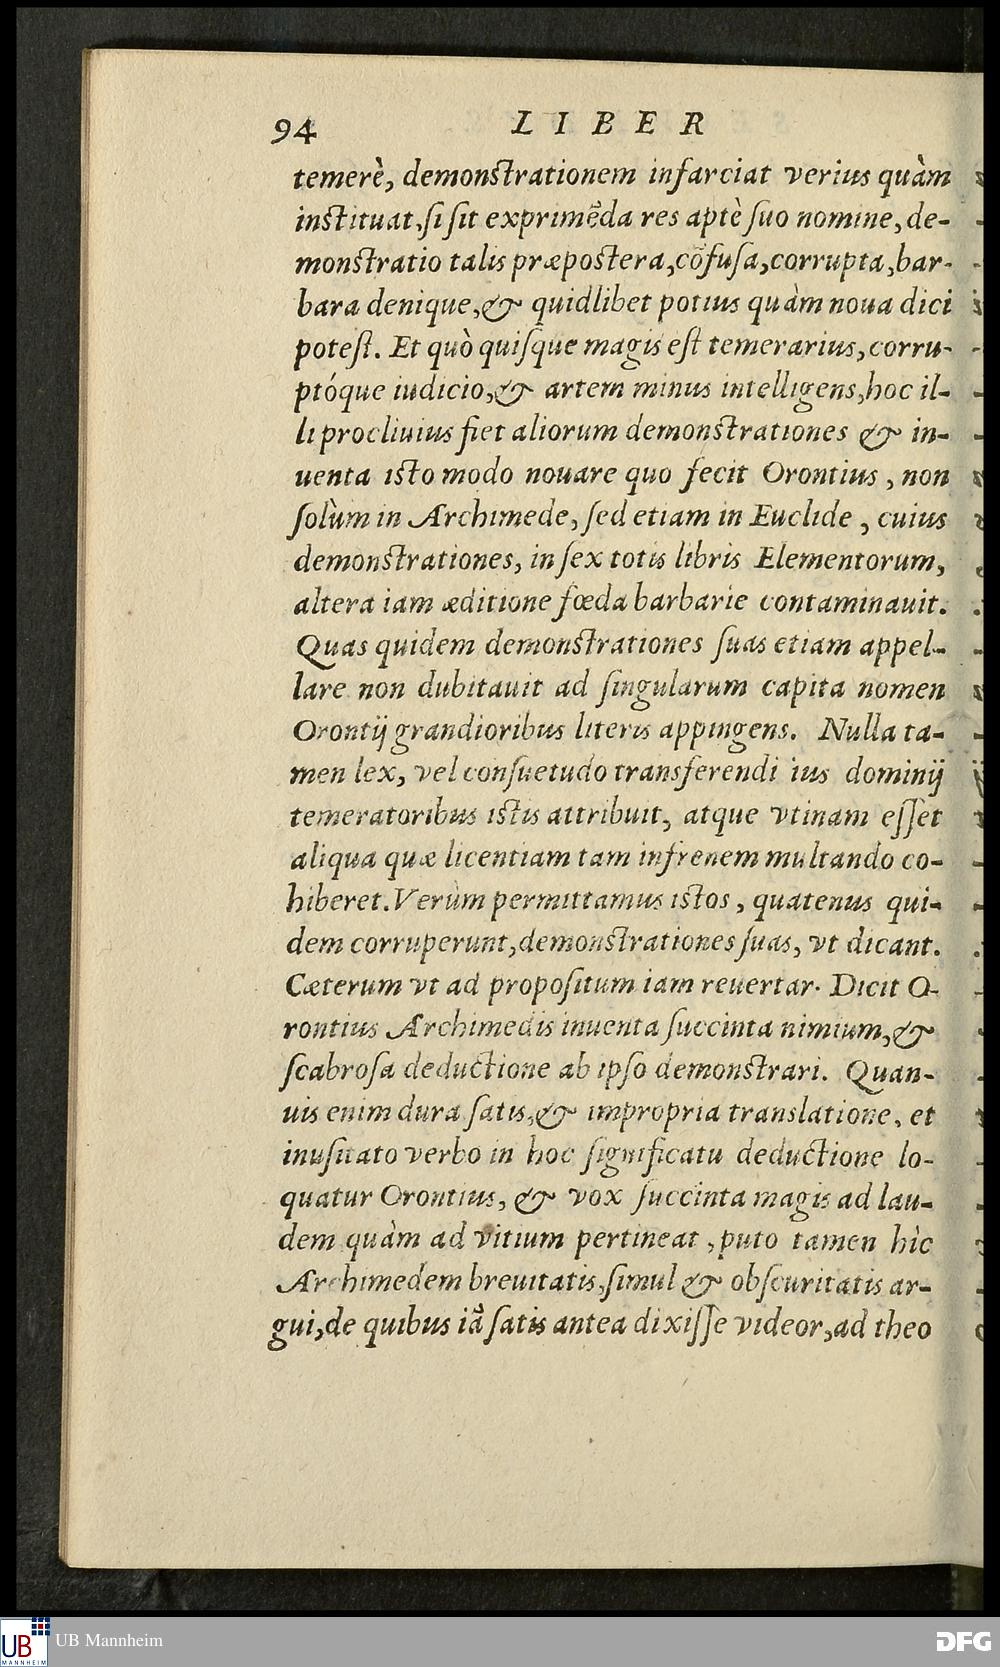 94 LIBER
temerè, demonstrationem infarciat verius quàm
instituat, si sit exprimẽda res aptè suo nomine, de-
monstratio talis præpostera, cõfusa, corrupta, bar-
bara denique, & quidlibet potius quàm noua dici
potest. Et quò quisque magis est temerarius, corru-
ptóque iudicio, & artem minus intelligens, hoc il-
li procliuius fiet aliorum demonstrationes & in-
uenta isto modo nouare quo fecit Orontius, non
solùm in Archimede, sed etiam in Euclide, cuius
demonstrationes, in sex totis libris Elementorum,
altera iam æditione fœda barbarie contaminauit.
Quas quidem demonstrationes suas etiam appel-
lare non dubitauit ad singularum capita nomen
Orontij grandioribus literis appingens. Nulla ta-
men lex, vel consuetudo transferendi ius dominij
temeratoribus istis attribuit, atque vtinam esset
aliqua quæ licentiam tam infrenem multando co-
hiberet. Verùm permittamus istos, quatenus qui-
dem corruperunt, demonstrationes suas, vt dicant.
Cæterum vt ad propositum iam reuertar. Dicit O-
rontius Archimedis inuenta succinta nimium, &
scabrosa deductione ab ipso demonstrari. Quan-
uis enim dura satis, & impropria translatione, et
inusitato verbo in hoc significatu deductione lo-
quatur Orontius, & vox succinta magis ad lau-
dem quàm ad vitium pertineat, puto tamen hìc
Archimedem breuitatis, simul & obscuritatis ar-
gui, de quibus iã satis antea dixisse videor, ad theo
UB Mannheim
UB
MANNHEIM
DFG